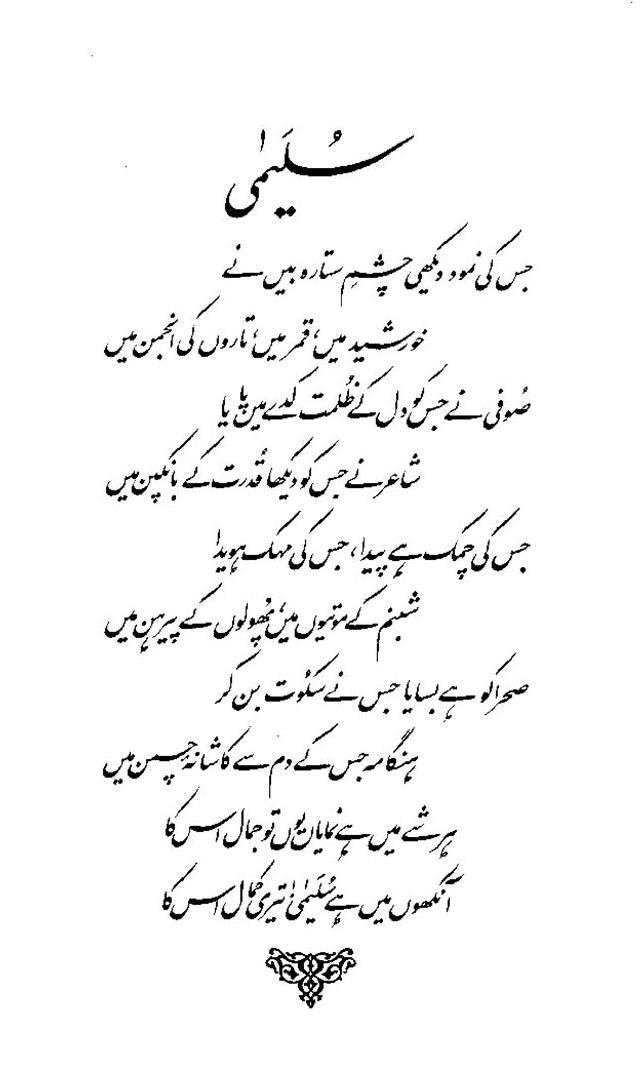 سُلَیمٰی
جس کی نمود دیکھی چشمِ ستارہ بیں نے
خورشید میں، قمر میں، تاروں کی انجمن میں
صُوفی نے جس کو دل کے ظُلمت کدے میں پایا
شاعر نے جس کو دیکھا قُدرت کے بانکپن میں
جس کی چمک ہے پیدا، جس کی مہک ہویدا
شبنم کے موتیوں میں، پھُولوں کے پیرہن میں
صحرا کو ہے بسایا جس نے سکُوت بن کر
ہنگامہ جس کے دم سے کاشانۂ چمن میں
ہر شے میں ہے نمایاں یوں تو جمال اس کا
آنکھوں میں ہے سُلَیمٰی! تیری کمال اس کا